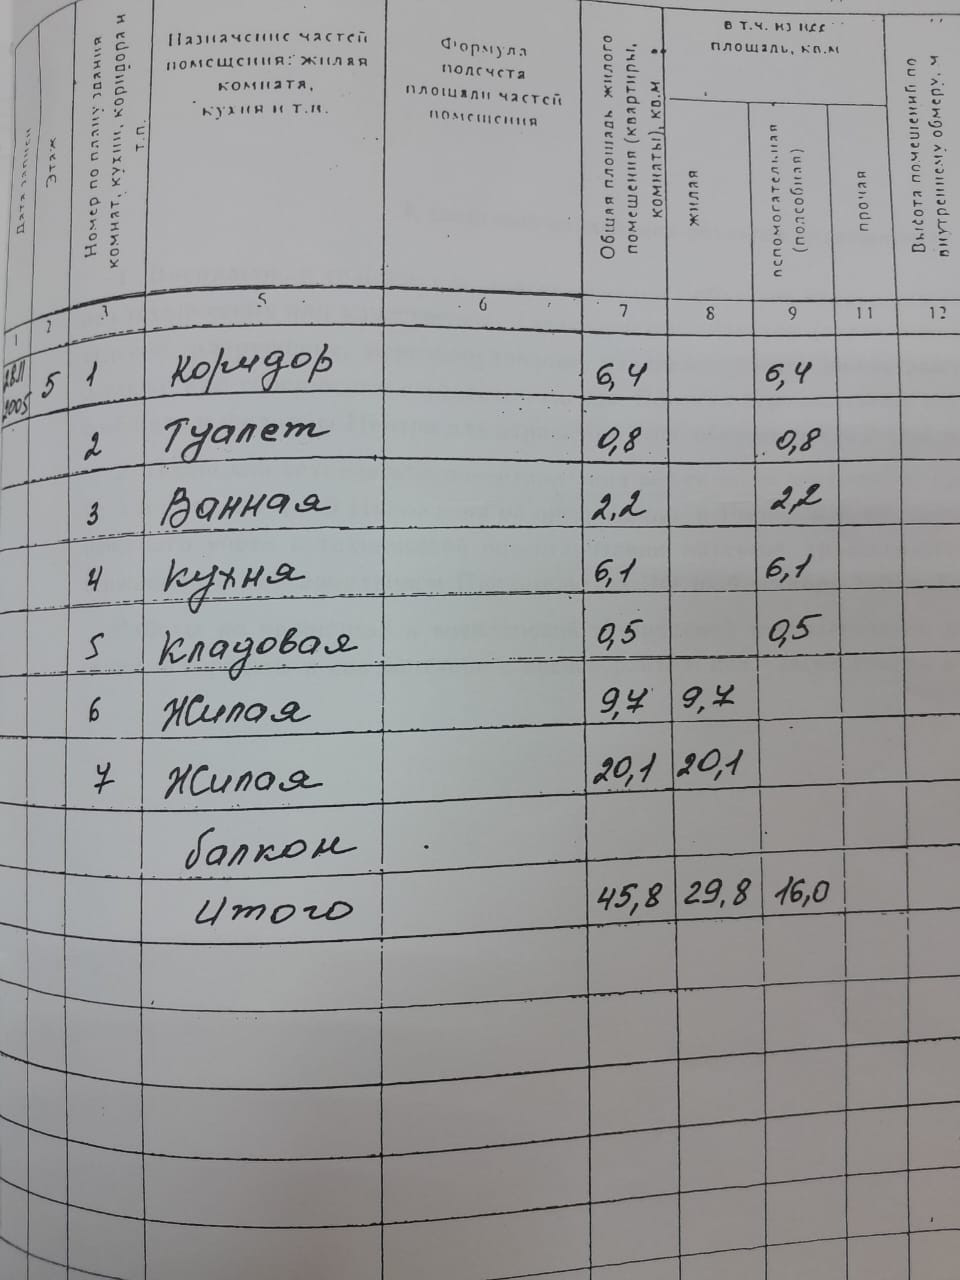 Дата записи
Этаж
Номер по плану здания комнат, кухни, коридора и т.п.
Назначение частей
помещения: жилая
комната,
кухня и т.п.
Формула
подсчета
площади частей
помещения
Общая площадь жилого помещения (квартиры, комнаты), кв.м
в т.ч. из нее
площадь, кв.м
жилая
вспомогательная (подсобная)
прочая
Высота помещений по внутреннему обмеру, м
1 2 3 5 6 7 8 9 11 12
2005 5 1 Коридор 6,4 6,4
2 Туалет 0,8 0,8
3 Ванная 2,2 2,2
4 Кухня 6,1 6,1
5 Кладовая 0,5 0,5
6 Жилая 9,7 9,7
7 Жилая 20,1 20,1
балкон
Итого 45,8 29,8 16,0